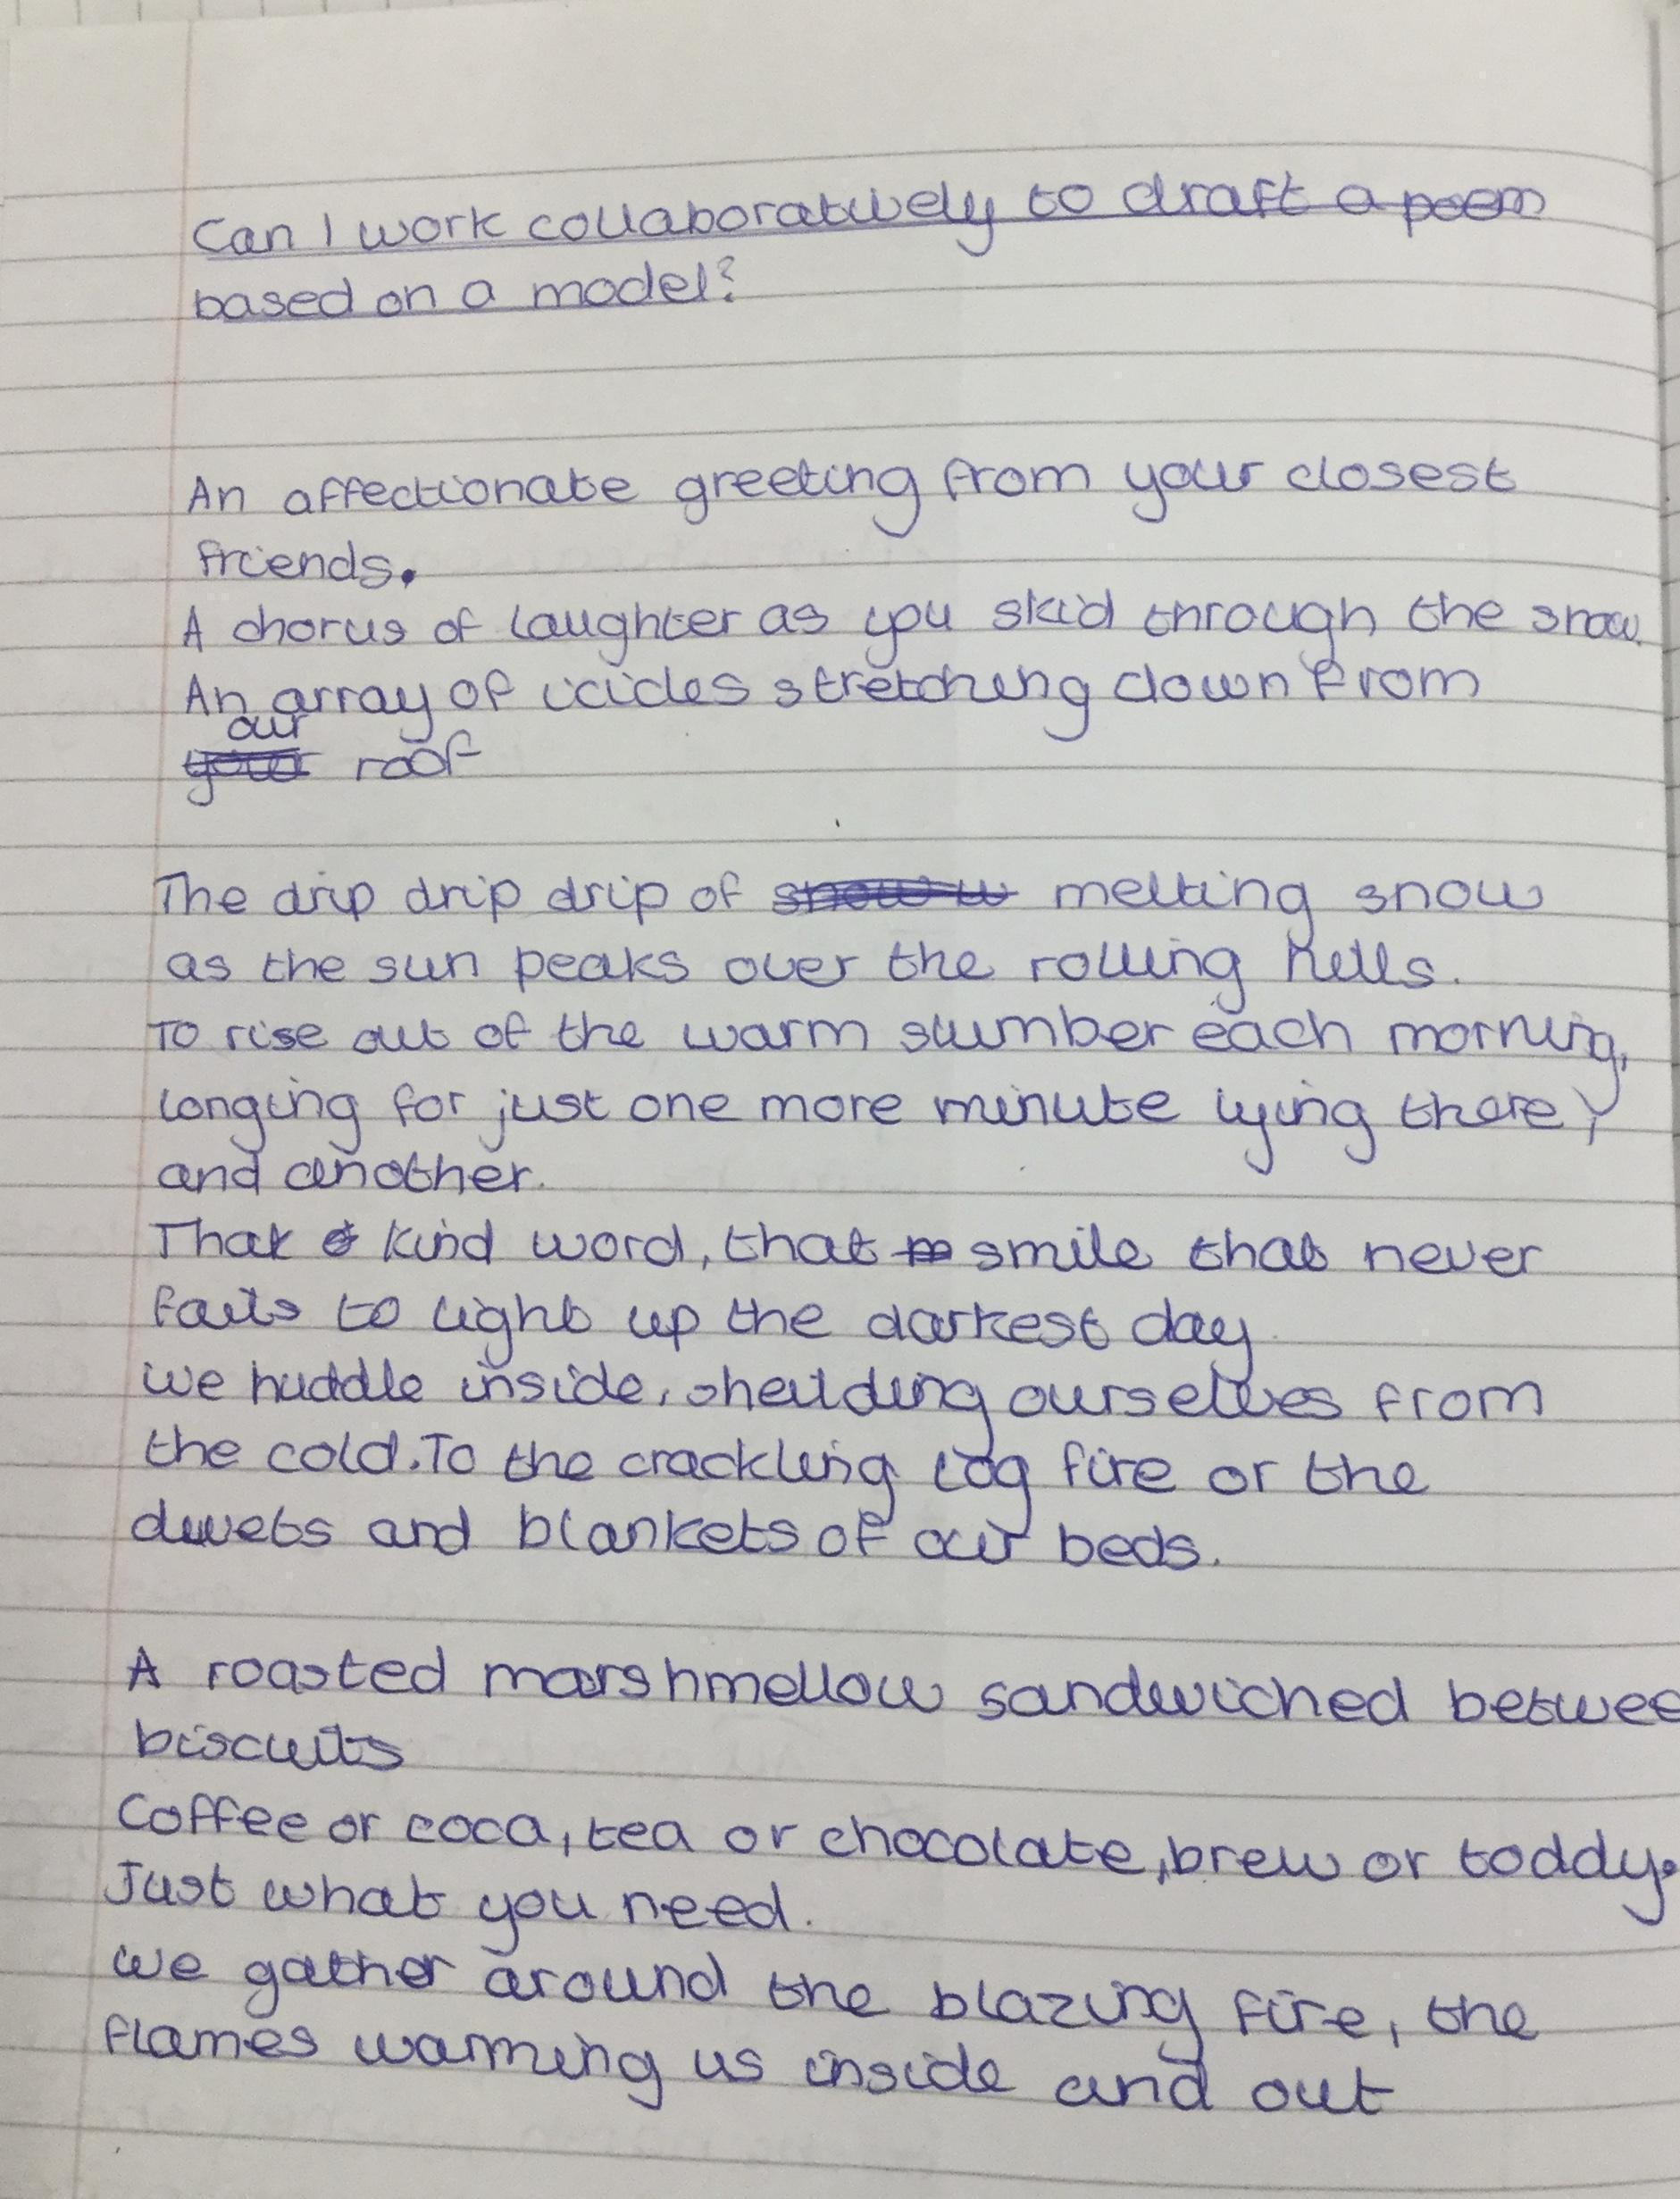 Can I work collaboratively to draft a poem
based on a model?
An affectionate greeting from your closest
friends.
A chorus of laughter as you skid through the snow.
An array of icicles stretching down from
our
your roof
The drip drip drip of snow w melting snow
as the sun peaks over the rolling hills.
To rise out of the warm slumber each morning,
longing for just one more minute lying there,
and another.
That kind word, that smile that never
fails to light up the darkest day
we huddle inside, sheilding ourselves from
the cold. To the crackling log fire or the
duvets and blankets of our beds.
A roasted marshmellow sandwiched betwee
biscuits
Coffee or coca, tea or chocolate, brew or toddy.
Just what you need.
we gather around the blazing fire, the
flames warming us inside and out